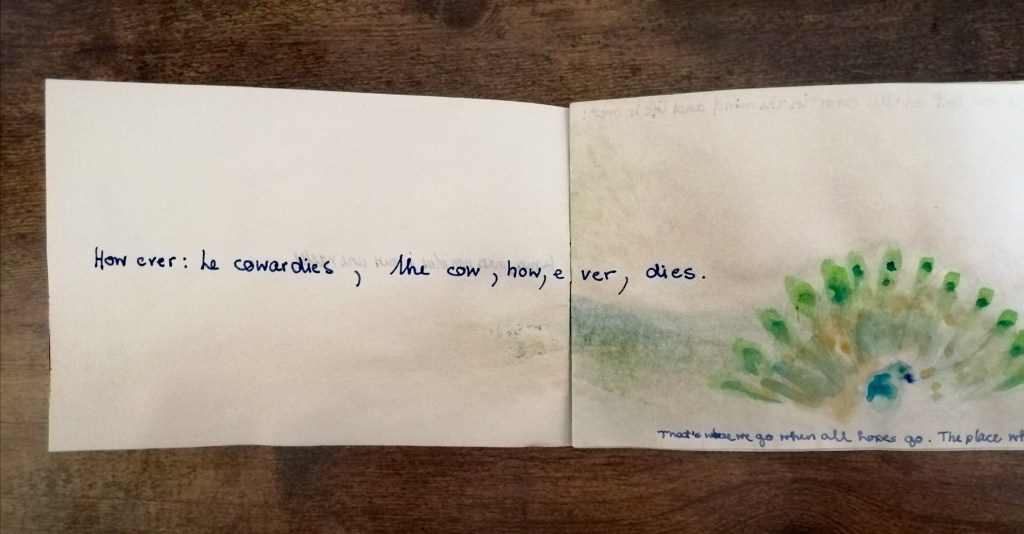 However: he cowardies, the cow, how, e ver, dies.
That's where we go when all hopes go. The place wh